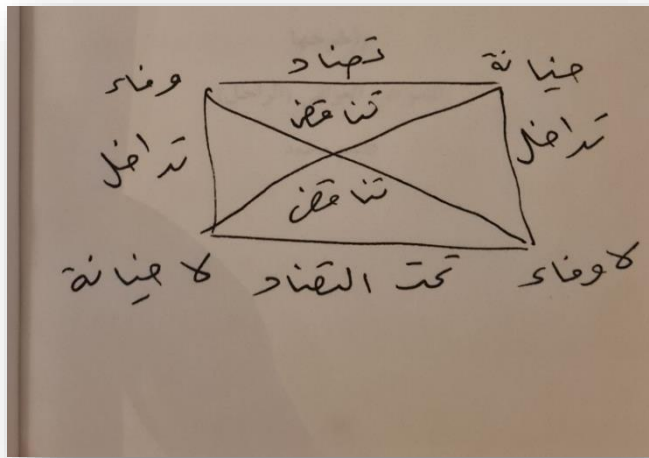 تضاد
خيانة
وفاء
تناقض
تداخل
تداخل
تناقض
لا وفاء
تحت التضاد
لا خيانة